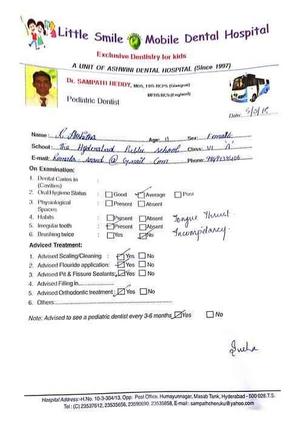 Little Smile Mobile Dental Hospital
Exclusive Dentistry for kids
A UNIT OF ASHWINI DENTAL HOSPITAL (Since 1997)
Dr. SAMPATH REDDY, MDS,
Pediatric Dentist
Date:
Name: Age: Sex: Female
School: The Hyderabad Public School Class: VI 'A'
E-mail: Phone:
On Examination:
1. Dental Caries in
(Cavities)
2. Oral Hygiene Status : Good Average Poor
3. Physiological : Present Absent
Spaces
4. Habits : Present Absent Tongue Thrust
5. Irregular teeth : Present Absent Incompetency
6. Brushing twice : Yes No
Adviced Treatment:
1. Advised Scaling/Cleaning : Yes No
2. Advised Flouride application: Yes No
3. Advised Pit & Fissure Sealants: Yes No
4. Advised Filling in
5. Advised Orthodontic treatment : Yes No
6. Others:
Note: Advised to see a pediatric dentist every 3-6 months Yes No
Hospital Address: H.No. 10-3-304/13, Opp. Post Office, Humayunnagar, Masab Tank, Hyderabad - 500 028.T.S.
Tel : (C) 23537612, 23535656, E-mail: sampathcheruku@yahoo.com